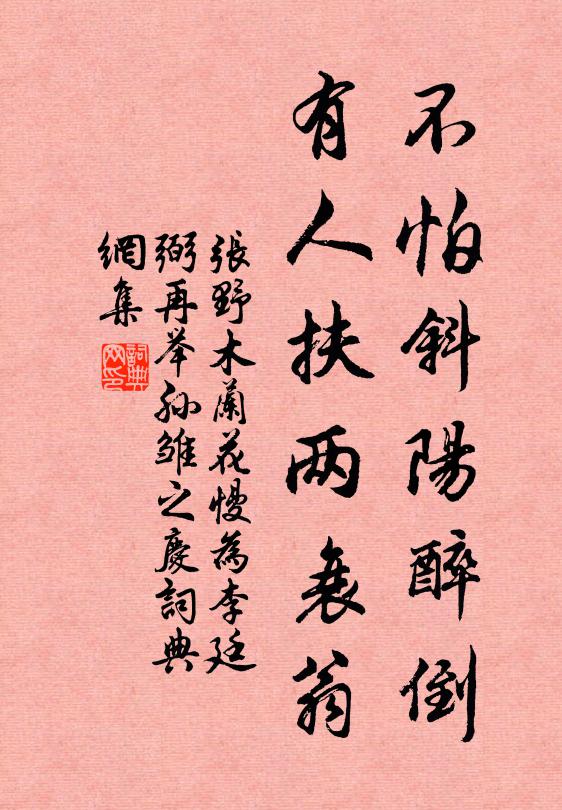 不怕斜陽醉倒
有人扶两衰翁
張野木蘭花慢為李廷
弼再举孙雏之慶詞典
網集
詞典
网印